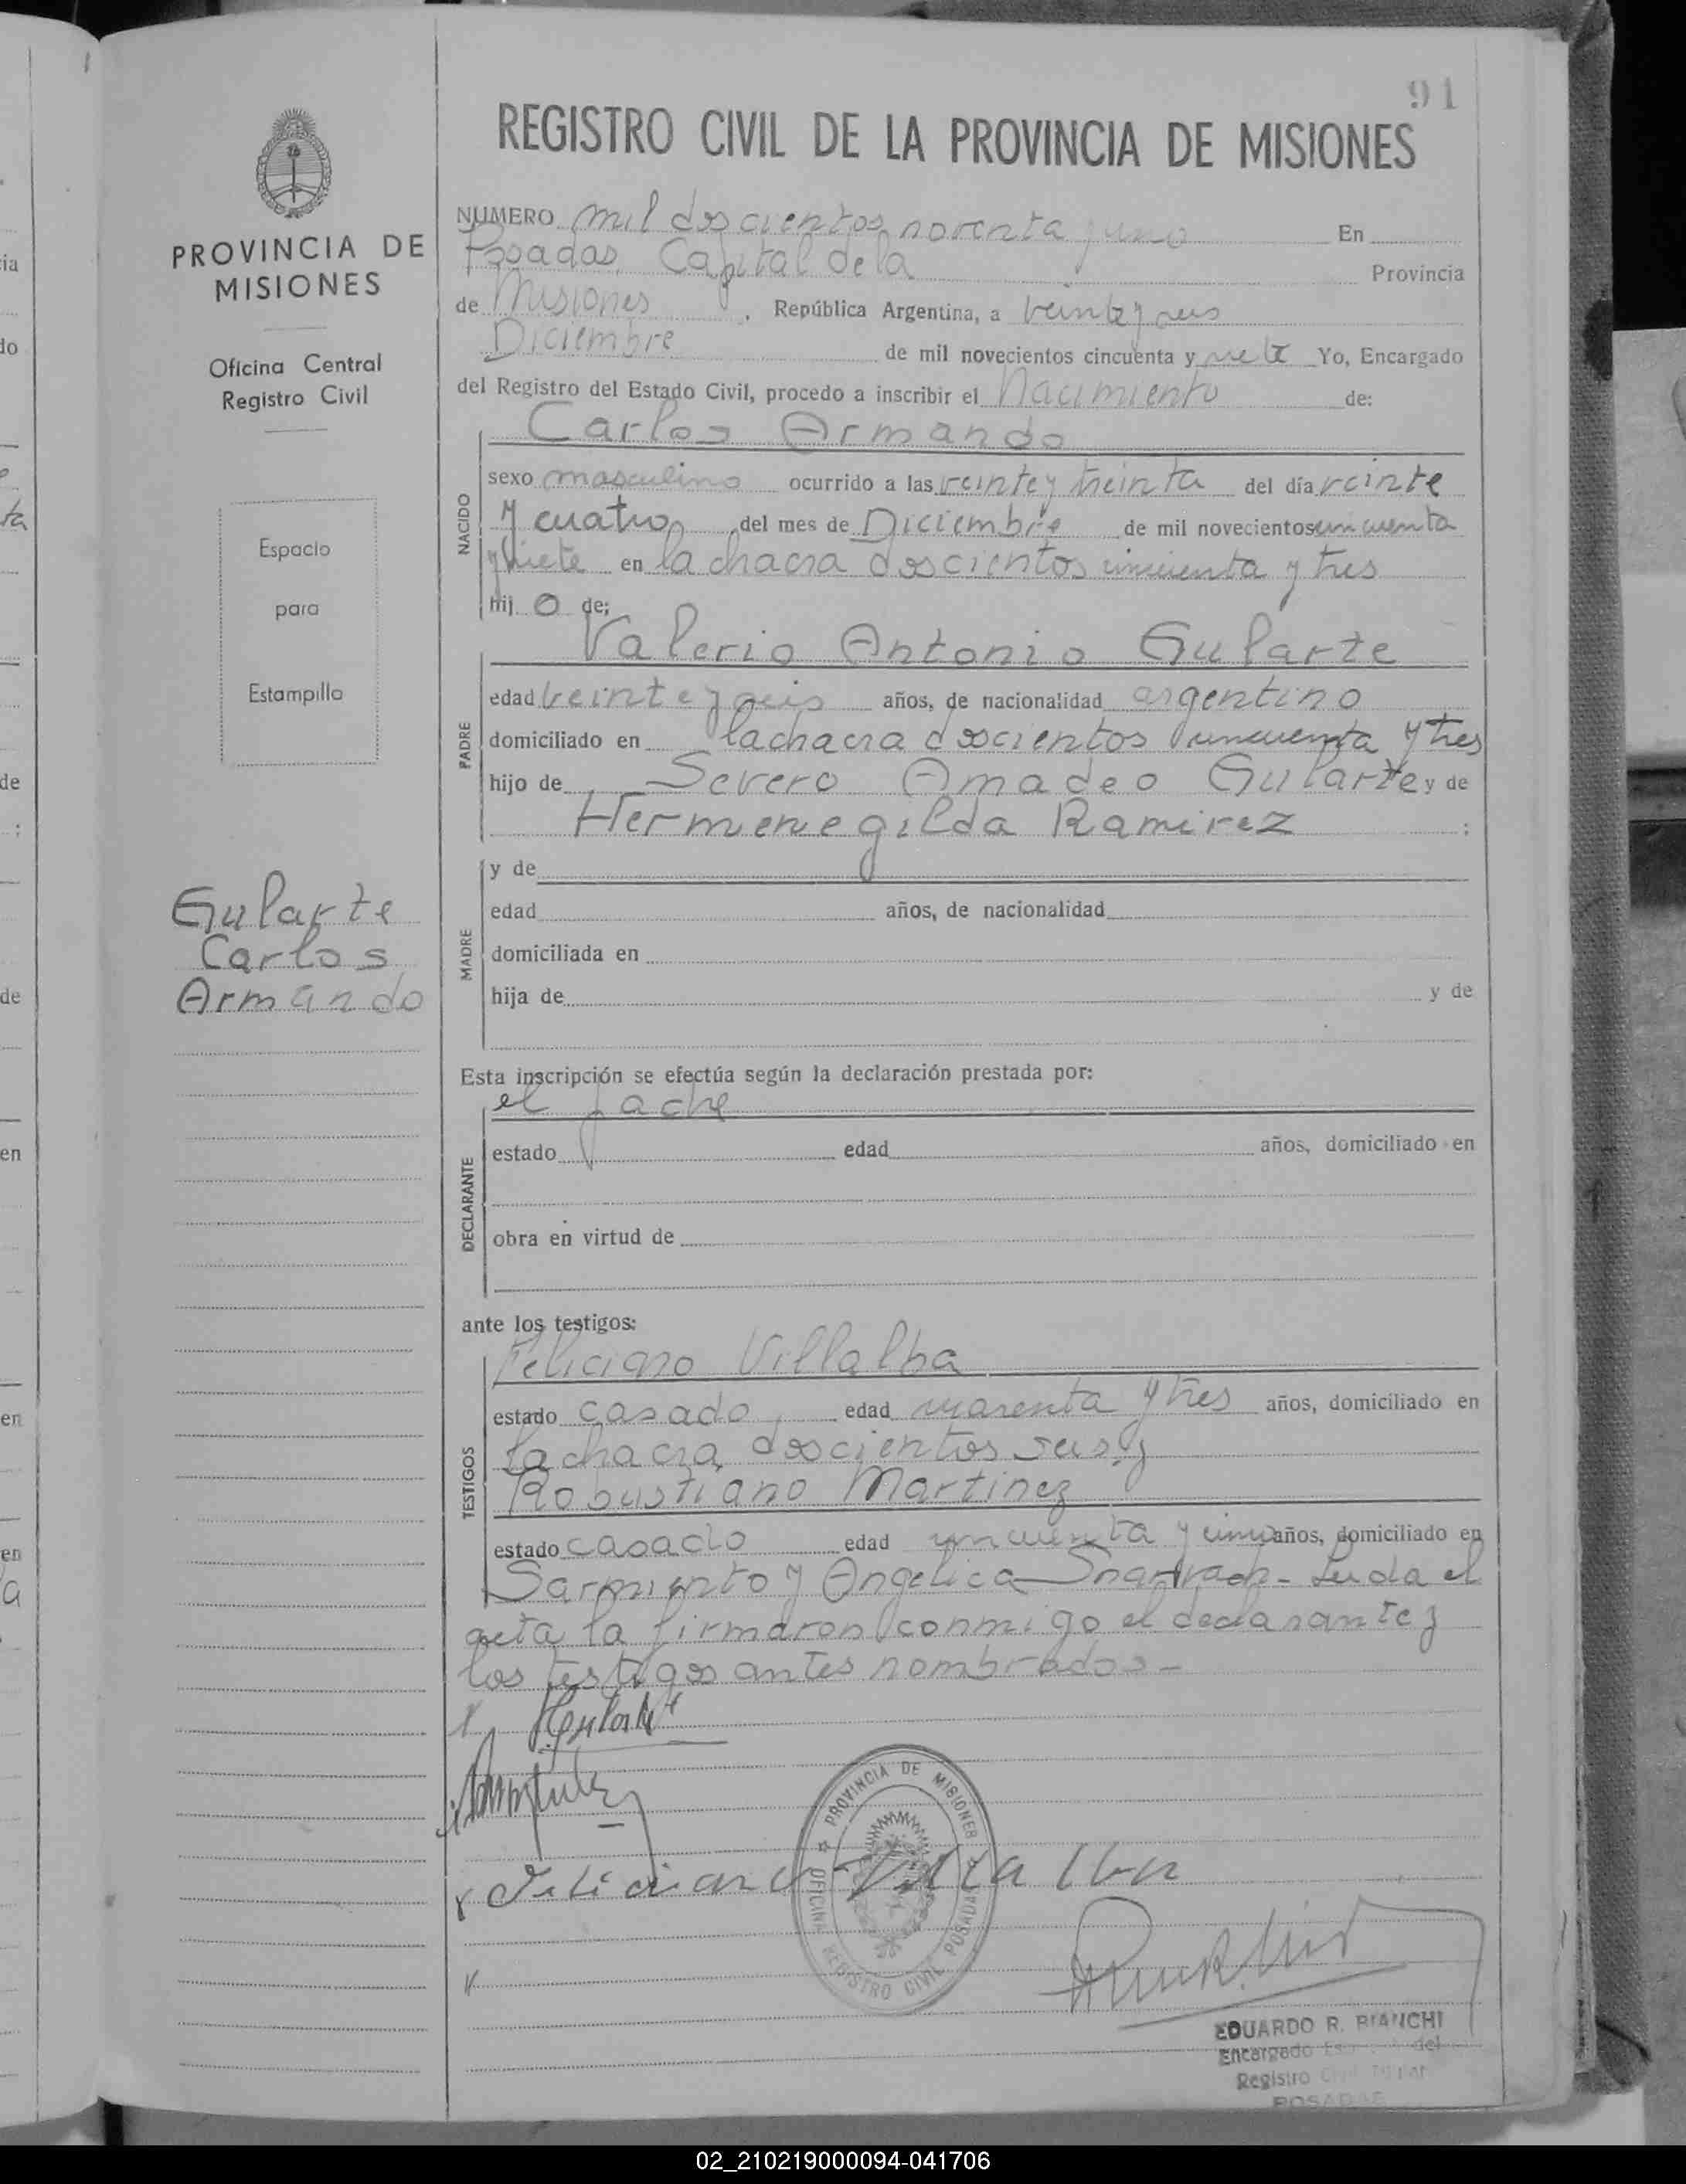 91
REGISTRO CIVIL DE LA PROVINCIA DE MISIONES
PROVINCIA DE
MISIONES
Oficina Central
Registro Civil
Espacio
para
Estampilla
Gularte
Carlos
Armando
NUMERO mil doscientos noventa y uno En
Posadas, Capital de la Provincia
de Misiones, República Argentina, a veinte y seis
Diciembre de mil novecientos cincuenta y siete Yo, Encargado
del Registro del Estado Civil, procedo a inscribir el Nacimiento de:
Carlos Armando
NACIDO
sexo masculino ocurrido a las veinte y treinta del día veinte
y cuatro del mes de Diciembre de mil novecientos cincuenta
y siete en la chacra doscientos cincuenta y tres
hij o de;
Valerio Antonio Gularte
PADRE
edad veinte y seis años, de nacionalidad argentino
domiciliado en la chacra doscientos cincuenta y tres
hijo de Severo Amadeo Gularte y de
Hermenegilda Ramirez ;
MADRE
y de
edad años, de nacionalidad
domiciliada en
hija de y de
Esta inscripción se efectúa según la declaración prestada por:
el padre
DECLARANTE
estado edad años, domiciliado en
obra en virtud de
ante los testigos:
Feliciano Villalba
TESTIGOS
estado casado, edad cuarenta y tres años, domiciliado en
la chacra doscientos seis y
Robustiano Martinez
estado casado edad cincuenta y cinco años, domiciliado en
Sarmiento y Angelica - Leida el
acta la firmaron conmigo el declarante y
los testigos antes nombrados -
Gularte
Feliciano Villalba
PROVINCIA DE MISIONES
OFICINA REGISTRO CIVIL POSADAS
EDUARDO R. BIANCHI
Encargado del
Registro
POSADAS
02_210219000094-041706